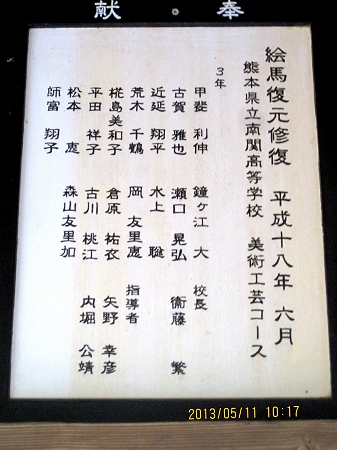 奉・献
絵馬復元修復 平成十八年 六月
熊本県立南関高等学校 美術工芸コース
3年
甲斐 利伸 鐘ヶ江 大 校長
古賀 雅也 瀬口 晃弘 衞藤 繁
近延 翔平 水上 聡
荒木 千鶴 岡 友里恵 指導者
椛島美和子 倉原 祐衣 矢野 幸彦
平田 祥子 古川 桃江 内堀 公靖
松本 恵 森山友里加
師富 翔子
2013/05/11 10:17